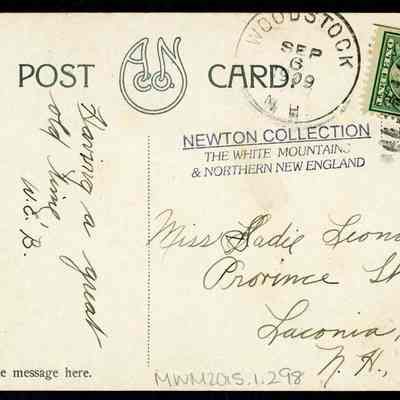 POST CARD
A.N. Co.
WOODSTOCK
SEP
6
1909
N.H.
NEWTON COLLECTION
THE WHITE MOUNTAINS
& NORTHERN NEW ENGLAND
Having a great
old time,
W.E.B.
Miss Sadie Leona
Province St
Laconia,
N.H.,
e message here.
MWM2015.1.298